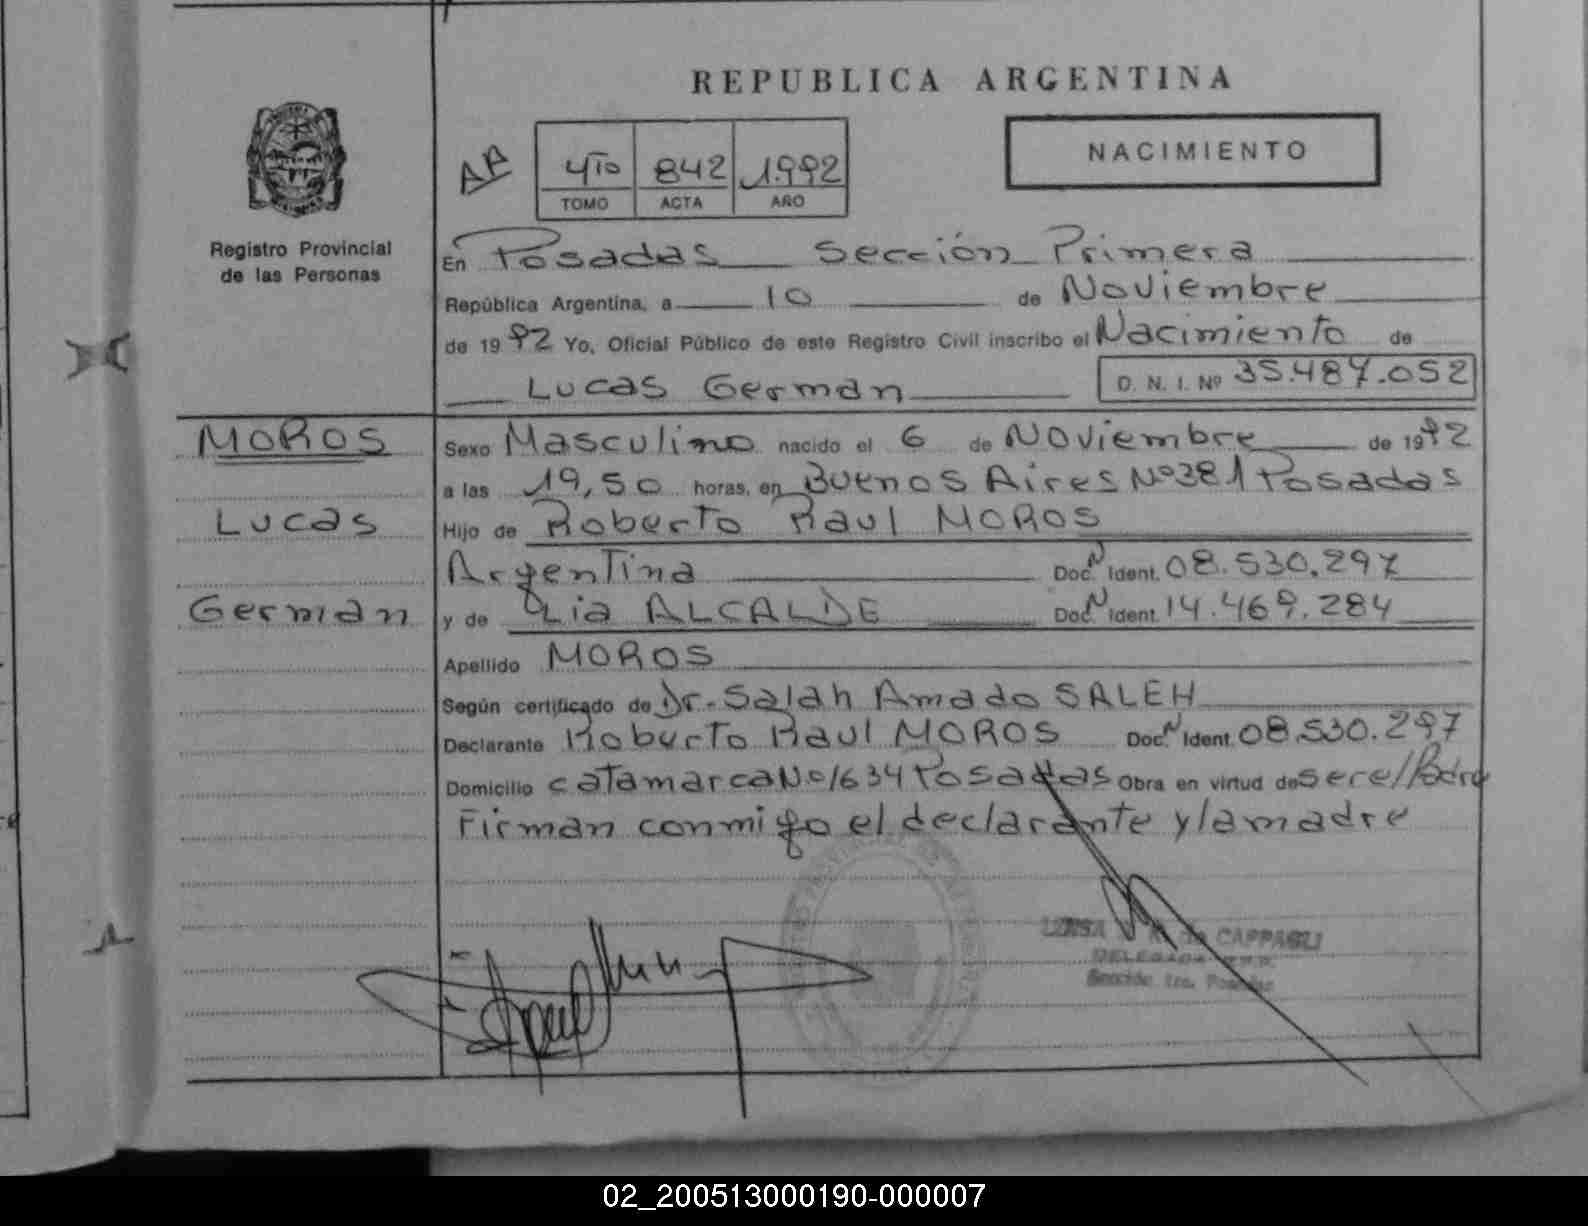 REPUBLICA ARGENTINA
NACIMIENTO
AA
4TO 842 1992
TOMO ACTA AÑO
Registro Provincial
de las Personas
En Posadas Sección Primera
República Argentina, a 10 de Noviembre
de 1992 Yo, Oficial Público de este Registro Civil inscribo el Nacimiento de
Lucas German D. N. I. Nº 35.487.052
MOROS
Lucas
German
Sexo Masculino nacido el 6 de Noviembre de 1992
a las 19,50 horas, en Buenos Aires Nº 381 Posadas
Hijo de Roberto Raul MOROS
Argentina Doc. N Ident. 08.530.297
y de Lia ALCALDE Doc. N Ident. 14.469.284
Apellido MOROS
Según certificado de Dr. Salah Amado SALEH
Declarante Roberto Raul MOROS Doc. N Ident. 08.530.297
Domicilio catamarca Nº 1634 Posadas Obra en virtud de ser el Padre
Firman conmigo el declarante y la madre
CAPPAGLI
DELEGADA
Sección 1ra. Posadas
02_200513000190-000007